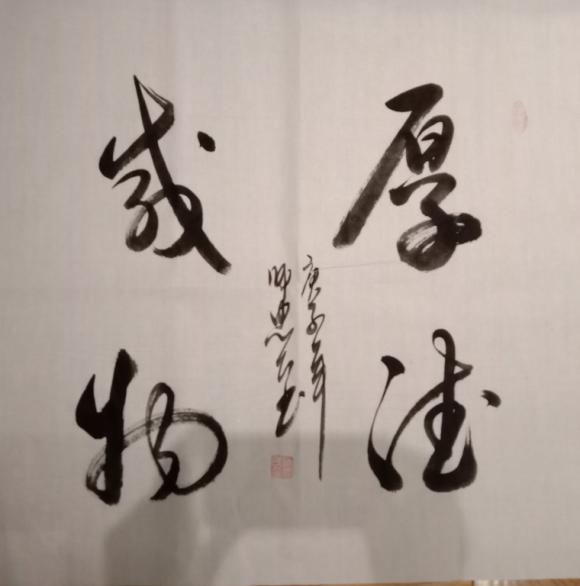 厚德
载物
庚子年